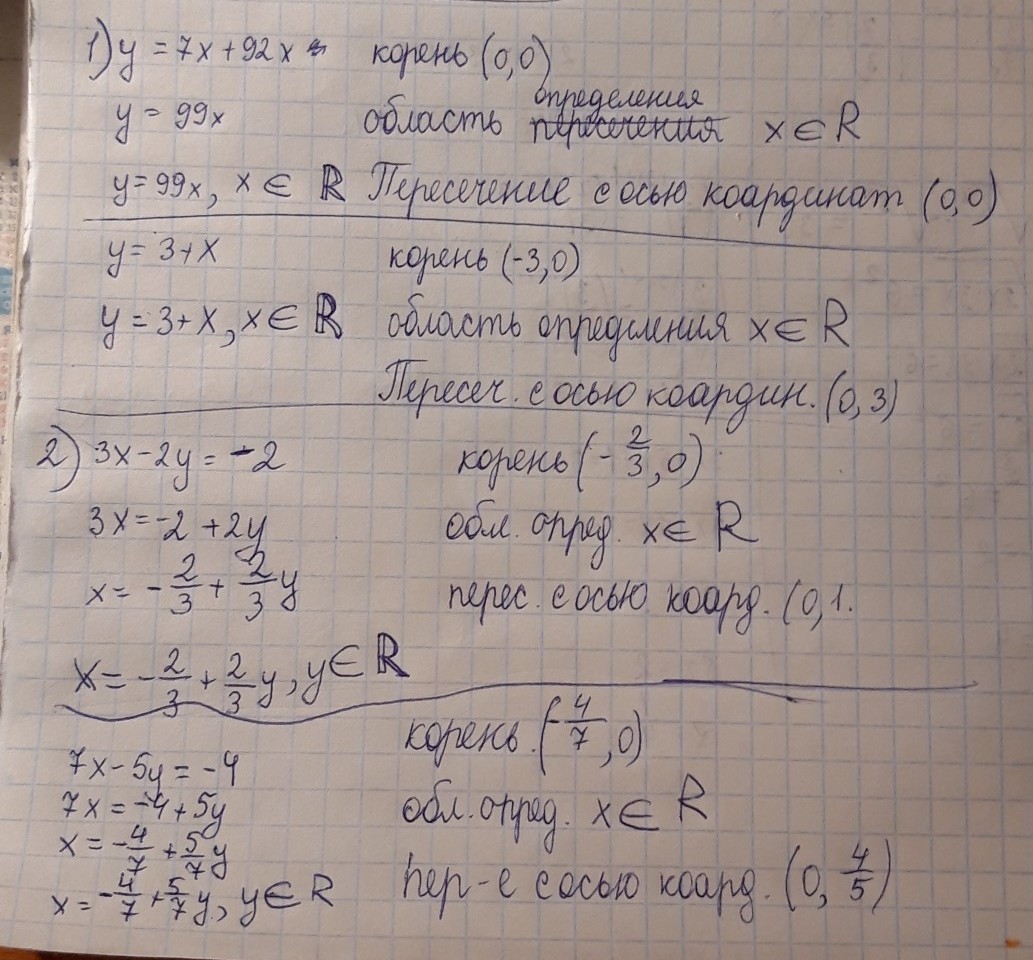 1) y = 7x + 92x корень (0,0)
y = 99x область определения пересечения x ∈ R
y = 99x, x ∈ ℝ Пересечение с осью коардинат (0,0)
y = 3+x корень (-3,0)
y = 3+x, x ∈ ℝ область определения x ∈ R
Пересеч. с осью коардин. (0, 3)
2) 3x - 2y = -2 корень (-2/3, 0)
3x = -2 + 2y обл. опред. x ∈ R
x = -2/3 + 2/3 y перес. с осью коард. (0, 1.
x = -2/3 + 2/3 y, y ∈ ℝ
корень (-4/7, 0)
7x - 5y = -4
7x = -4 + 5y обл. опред. x ∈ R
x = -4/7 + 5/7 y
x = -4/7 + 5/7 y, y ∈ R пер-е с осью коард. (0, 4/5)